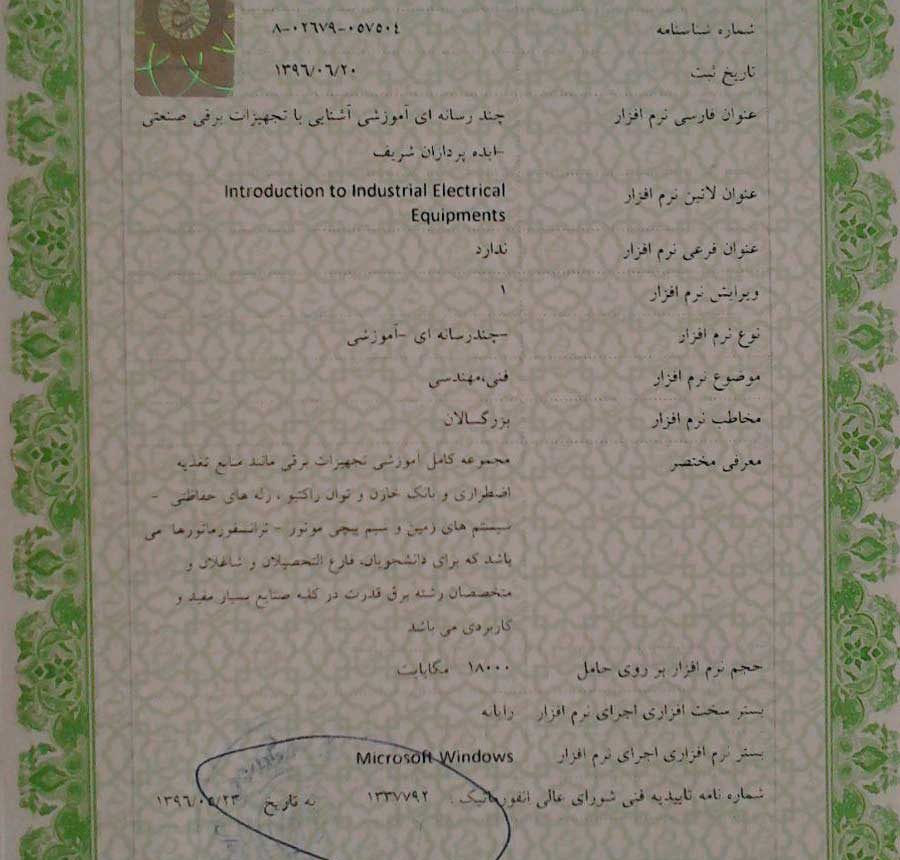 شماره شناسنامه ۸-۰۲۶۷۹-۰۵۷۵۰۴
تاریخ ثبت ۱۳۹۶/۰۶/۲۰
عنوان فارسی نرم افزار چند رسانه ای آموزشی آشنایی با تجهیزات برقی صنعتی
-ایده پردازان شریف
عنوان لاتین نرم افزار Introduction to Industrial Electrical
Equipments
عنوان فرعی نرم افزار ندارد
ویرایش نرم افزار ۱
نوع نرم افزار -چندرسانه ای -آموزشی
موضوع نرم افزار فنی،مهندسی
مخاطب نرم افزار بزرگسالان
معرفی مختصر مجموعه کامل آموزشی تجهیزات برقی مانند منابع تغذیه
اضطراری و بانک خازن و توان راکتیو ، رله های حفاظتی -
سیستم های زمین و سیم پیچی موتور - ترانسفورماتورها می
باشد که برای دانشجویان، فارغ التحصیلان و شاغلان و
متخصصان رشته برق قدرت در کلیه صنایع بسیار مفید و
کاربردی می باشد
حجم نرم افزار بر روی حامل ۱۸۰۰۰ مگابایت
بستر سخت افزاری اجرای نرم افزار رایانه
بستر نرم افزاری اجرای نرم افزار Microsoft Windows
شماره نامه تاییدیه فنی شورای عالی انفورماتیک . ۱۳۳۷۷۹۲ به تاریخ ۱۳۹۶/۰۵/۲۳